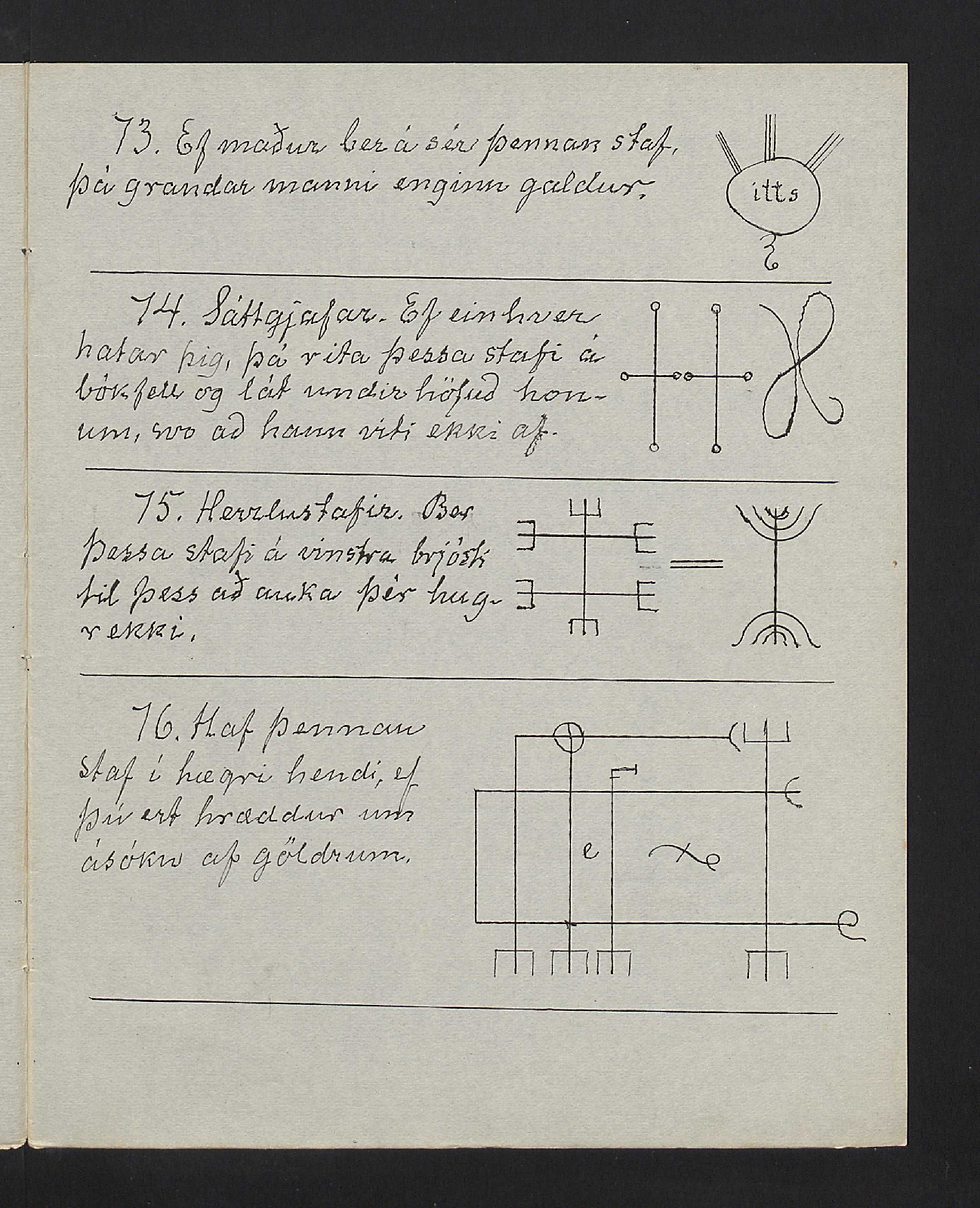 73. Ef maður ber á sér þennan staf,
þá grandar manni enginn galdur.
itts
74. Sáttgjafar. Ef einhver
hatar þig, þá rita þessa stafi á
bókfell og lát undir höfuð hon-
um, svo að hann viti ekki af.
75. Herzlustafir. Ber
þessa stafi á vinstra brjósti
til þess að auka þér hug-
rekki.
76. Haf þennan
staf í hægri hendi, ef
þú ert hræddur um
ásókn af göldrum.
e